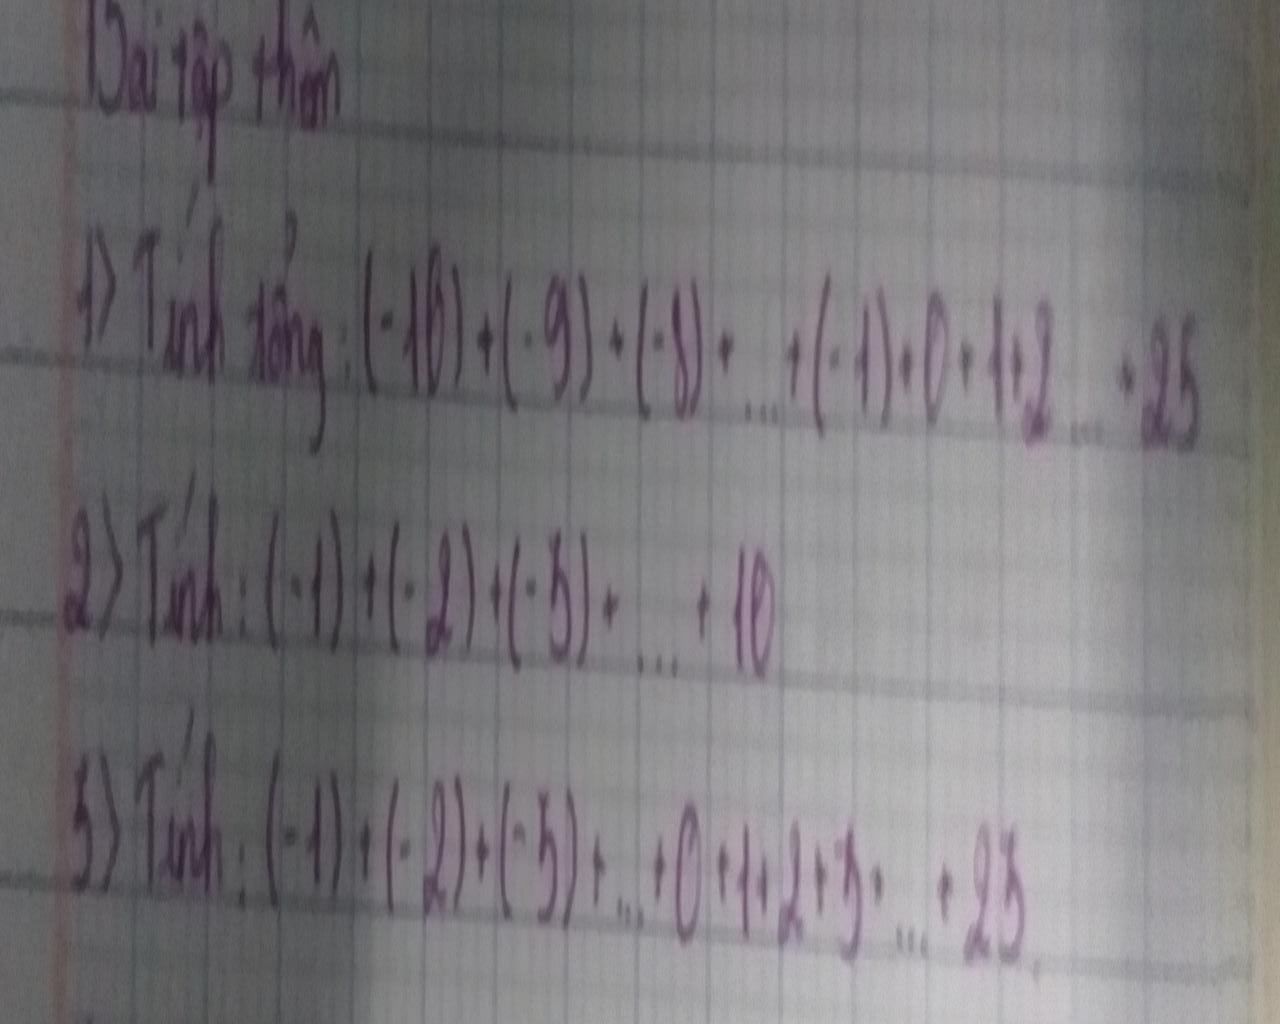 Bài tập thêm
1) Tính tổng: (-10) + (-9) + (-8) + ... + (-1) + 0 + 1 + 2 ... + 25
2) Tính: (-1) + (-2) + (-3) + ... + 10
3) Tính: (-1) + (-2) + (-3) + ... + 0 + 1 + 2 + 3 + ... + 25